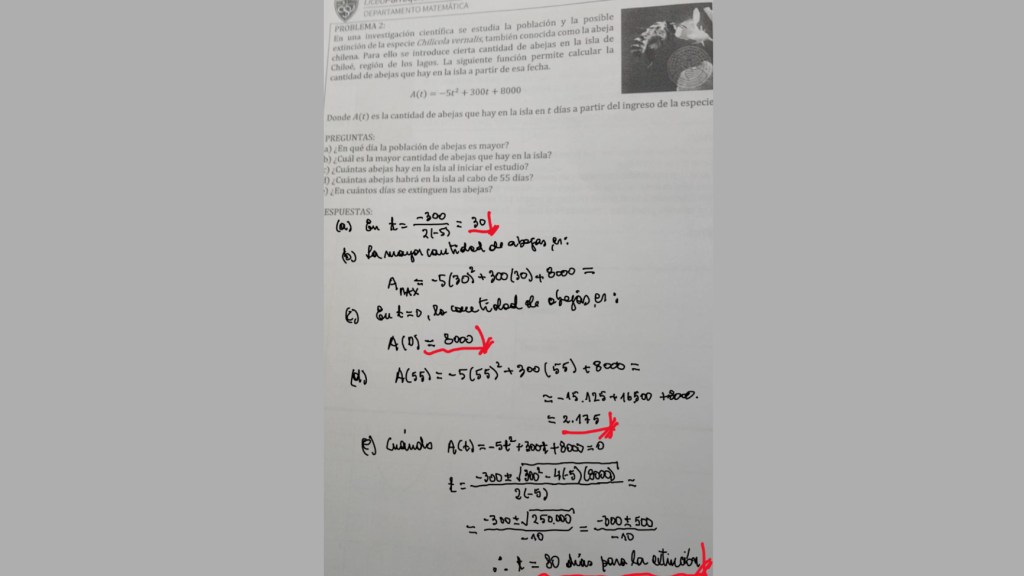 DEPARTAMENTO MATEMÁTICA
PROBLEMA 2:
En una investigación científica se estudia la población y la posible
extinción de la especie Chilicola vernalis, también conocida como la abeja
chilena. Para ello se introduce cierta cantidad de abejas en la isla de
Chiloé, región de los lagos. La siguiente función permite calcular la
cantidad de abejas que hay en la isla a partir de esa fecha.
A(t) = −5t² + 300t + 8000
Donde A(t) es la cantidad de abejas que hay en la isla en t días a partir del ingreso de la especie
PREGUNTAS:
a) ¿En qué día la población de abejas es mayor?
b) ¿Cuál es la mayor cantidad de abejas que hay en la isla?
) ¿Cuántas abejas hay en la isla al iniciar el estudio?
) ¿Cuántas abejas habrá en la isla al cabo de 55 días?
) ¿En cuántos días se extinguen las abejas?
ESPUESTAS:
(a) En t = -300 / 2(-5) = 30
(b) La mayor cantidad de abejas, es:
A MAX = -5(30)² + 300(30) + 8000 =
(c) En t=0, la cantidad de abejas, es:
A(0) = 8000
(d) A(55) = -5(55)² + 300(55) + 8000 =
= -15.125 + 16500 + 8000.
= 2.175
(E) Cuándo A(t) = -5t² + 300t + 8000 = 0
t = -300 ± √300² - 4(-5)(8000) / 2(-5) =
= -300 ± √250.000 / -10 = -300 ± 500 / -10
∴ t = 80 días para la extinción